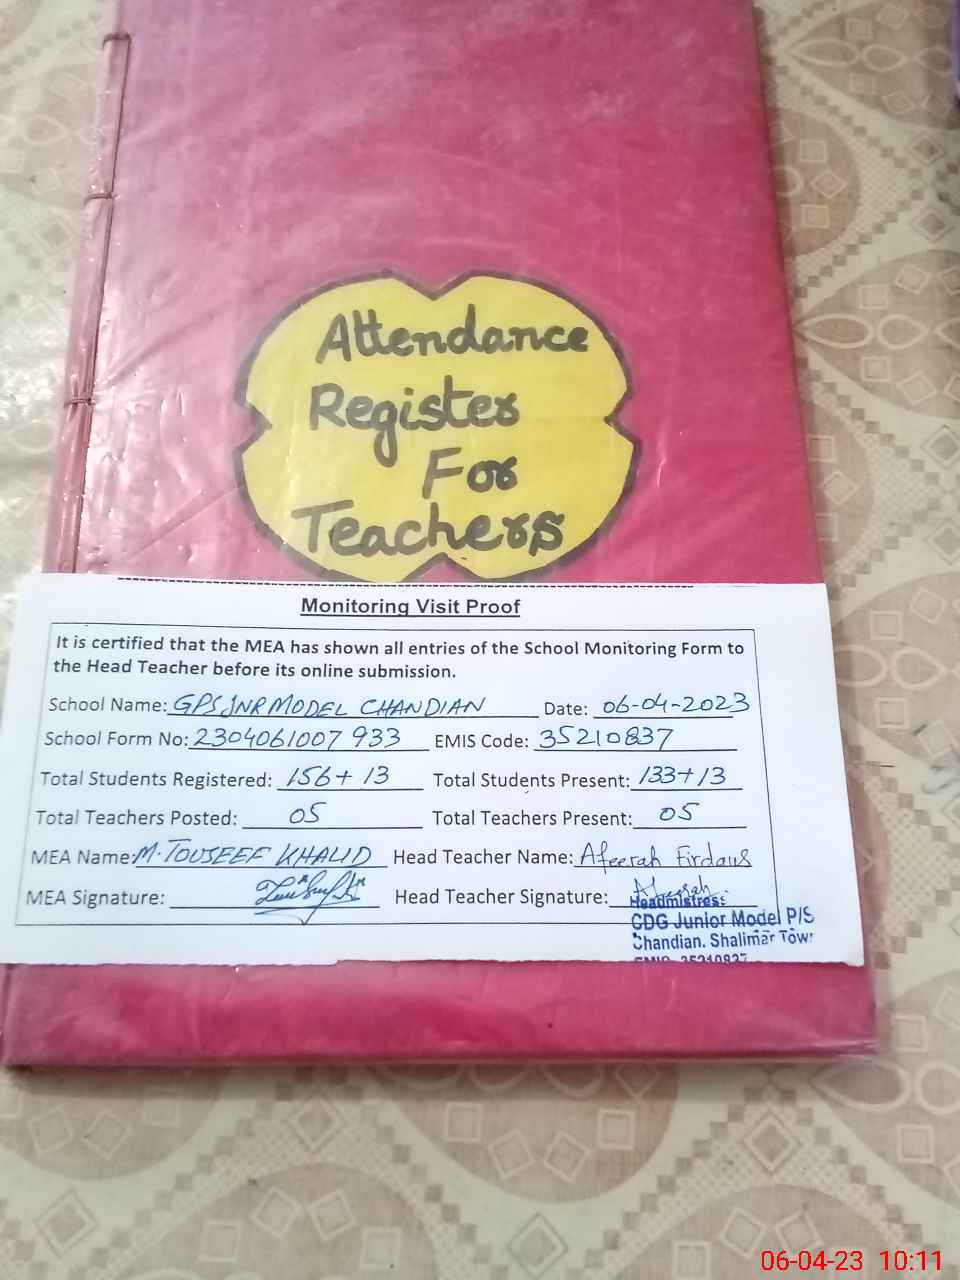 Attendance
Register
For
Teachers
Monitoring Visit Proof
It is certified that the MEA has shown all entries of the School Monitoring Form to
the Head Teacher before its online submission.
School Name: GPS JNR MODEL CHANDIAN Date: 06-04-2023
School Form No: 2304061007 933 EMIS Code: 35210837
Total Students Registered: 156+ 13 Total Students Present: 133+13
Total Teachers Posted: 05 Total Teachers Present: 05
MEA Name: M. TOUSEEF KHALID Head Teacher Name: Afeerah Firdaus
MEA Signature: Head Teacher Signature: Afeerah
Headmistress
CDG Junior Model P/S
Chandian. Shalimar Tow
EMIS 35210837
06-04-23 10:11